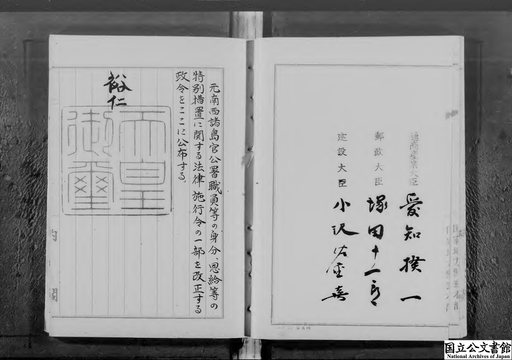 元南西諸島官公署職員等の身分、恩給等の
特別措置に関する法律施行令の一部を改正する
政令をここに公布する。
裕仁
天皇
御璽
愛知揆一
郵政大臣
塚田十一郎
建設大臣
小沢佐重喜
内閣
国立公文書館
National Archives of Japan